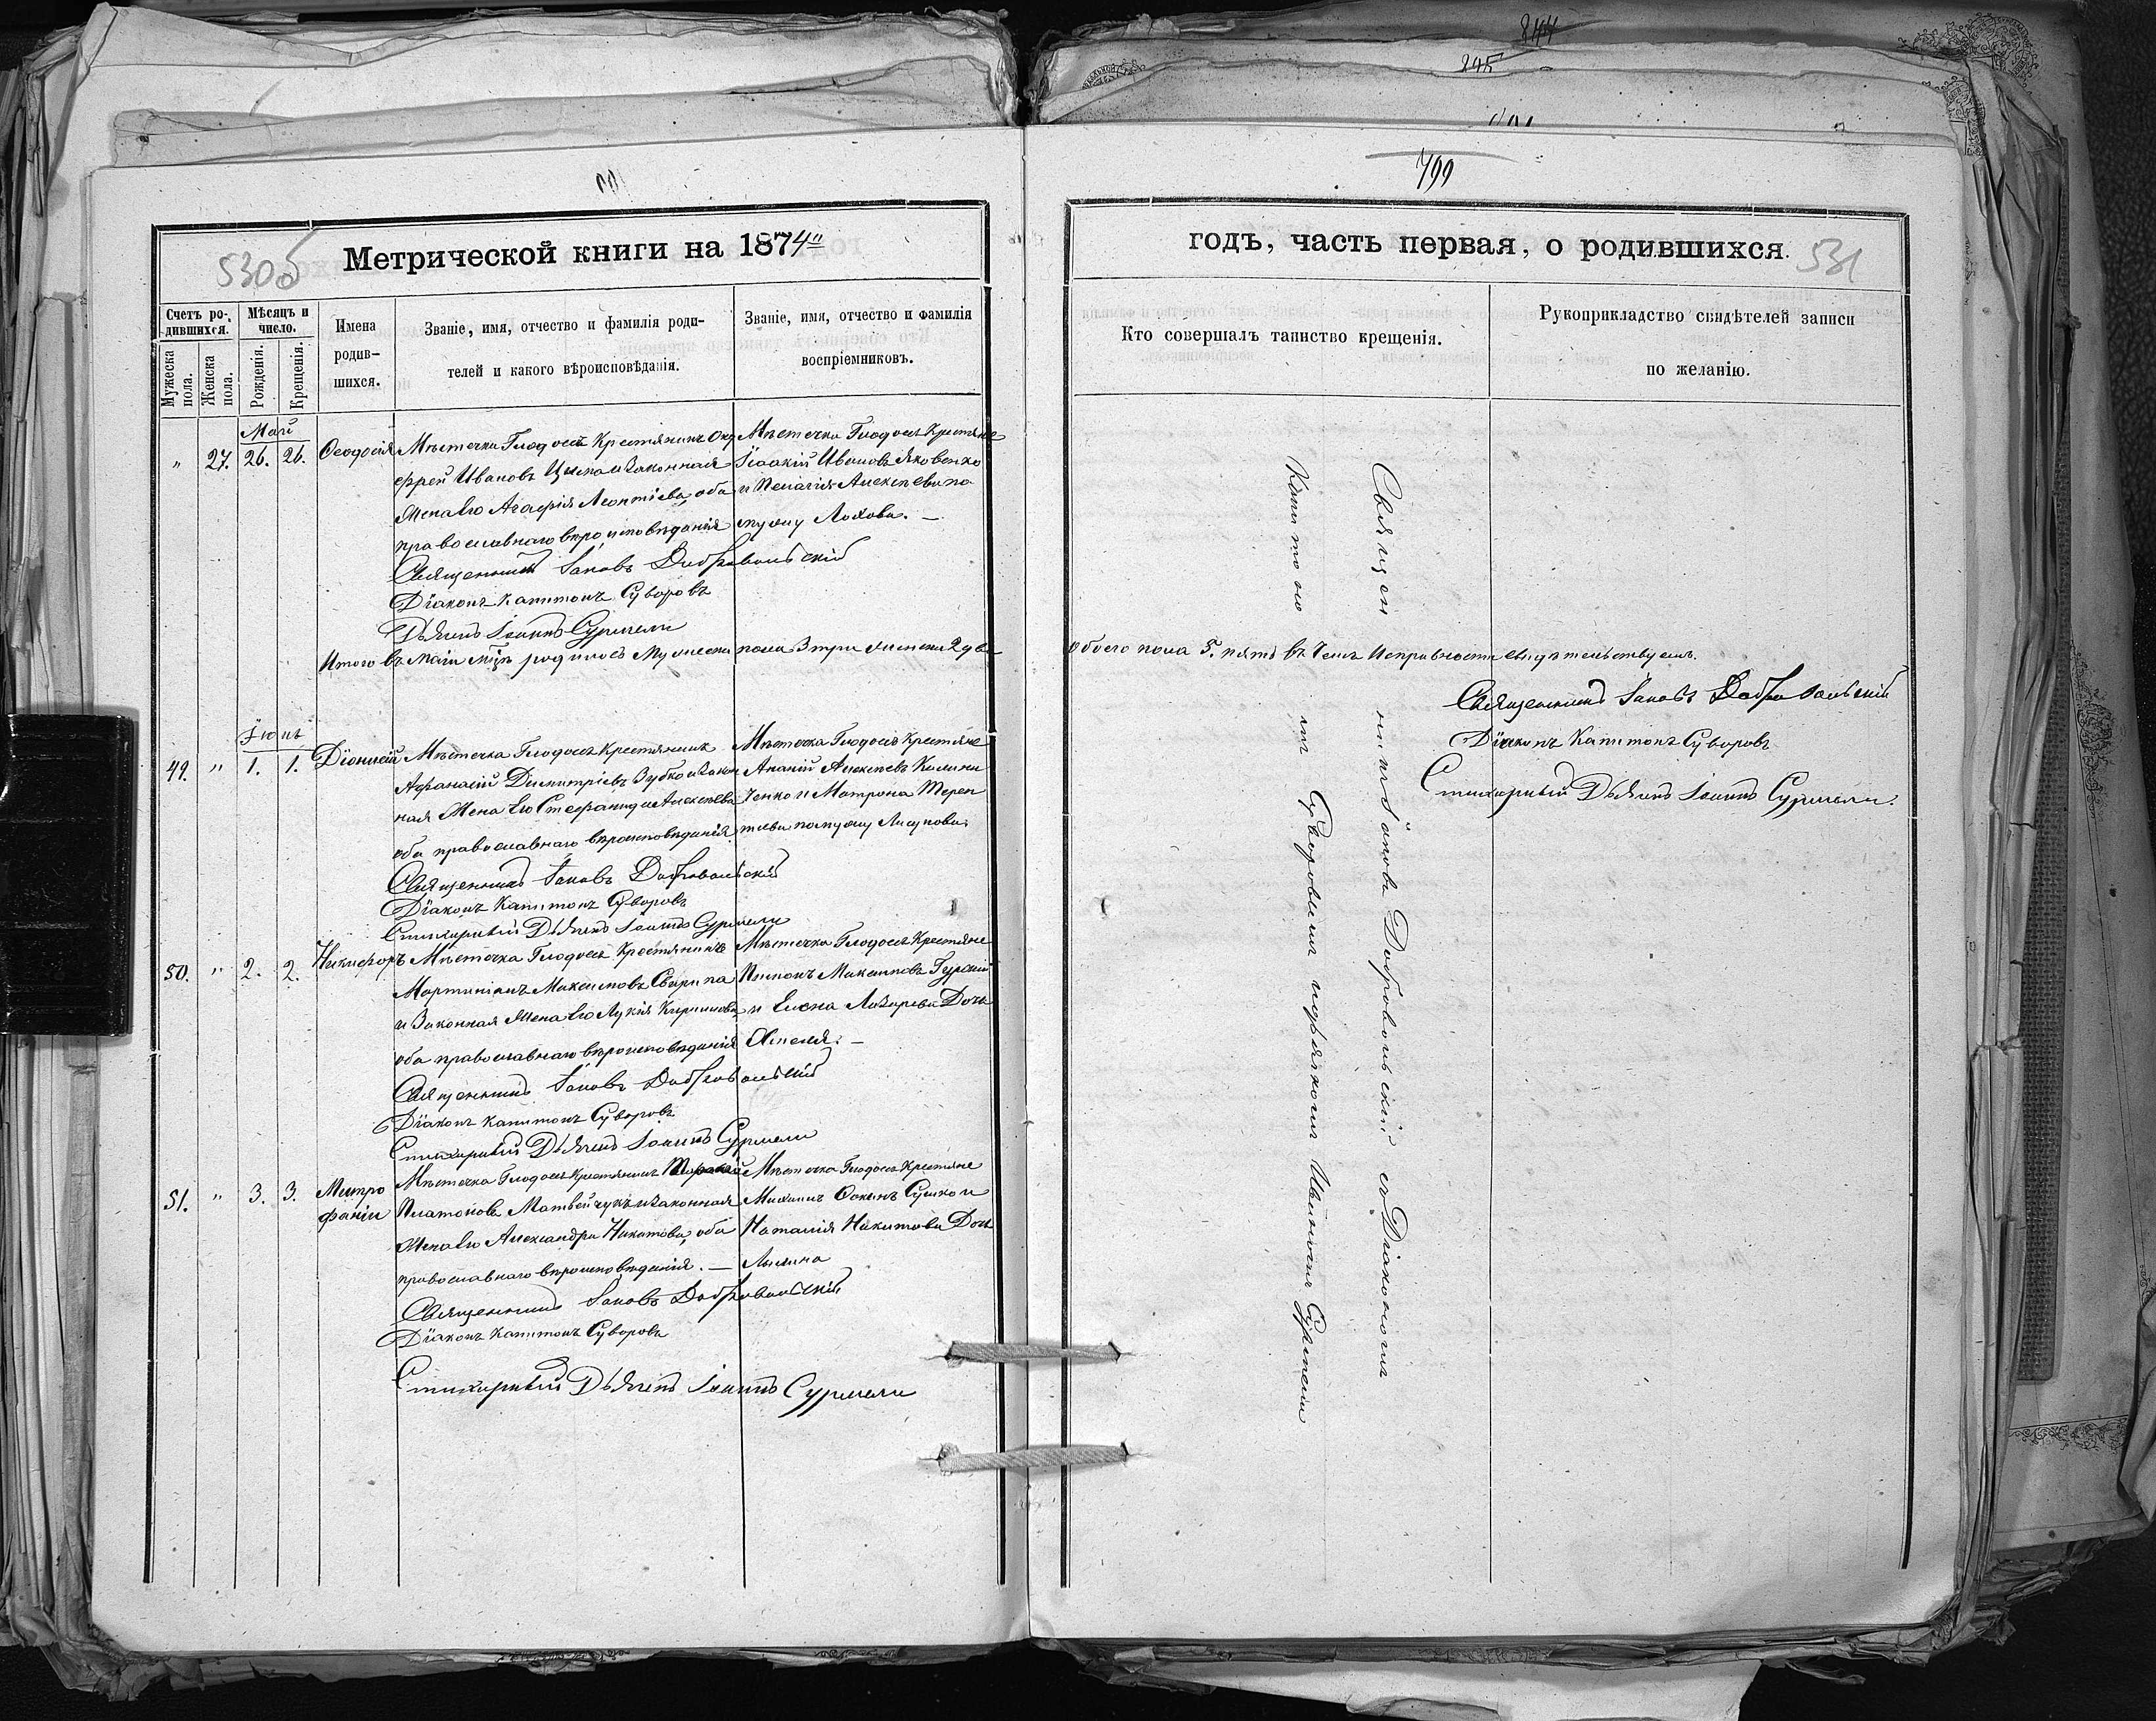 844
245
799
530б
Метрической книги на 1874
годъ, часть первая, о родившихся.
531
Счетъ ро-
дившихся.
Мужеска
пола.
Женска
пола.
Мѣсяцъ и
число.
Рожденія.
Крещенія.
Имена
родив-
шихся.
Званіе, имя, отчество и фамилія роди-
телей и какого вѣроисповѣданія.
Званіе, имя, отчество и фамилія
воспріемниковъ.
Кто совершалъ таинство крещенія.
Рукоприкладство свидѣтелей записи
по желанію.
Май
" 27. 26. 26. Ѳеодосія
Мѣстечка Глодосъ Крестьянинъ Ону
фрей Ивановъ и законная
жена Его Агафія Леонтіева, оба
православнаго вѣроисповѣданія
Мѣстечка Глодосъ Крестьяне
Іоакій Ивановъ Яковенко
и Пелагія Алексѣева по
мужу
Священникъ Іаковъ Добровольскій
Діаконъ Капитонъ Суворовъ
Дьячекъ Іоаннъ Сурмели
Итого въ маѣ мцѣ родилось Мужеска пола 3 три женска 2 два
обоего пола 5. пять въ чемъ исправности свидѣтельствуемъ.
Священникъ Іаковъ Добровольскій
Діаконъ Капитонъ Суворовъ
Стихарный Дьячекъ Іоаннъ Сурмели.
Іюнь
49. " 1. 1. Діонисій
Мѣстечка Глодосъ Крестьянинъ
Афанасій Димитріевъ Зубко и закон
ная жена Его Стефанида Алексѣева
оба православнаго вѣроисповѣданія
Мѣстечка Глодосъ Крестьяне
Ананій Алексѣевъ Калини
ченко и Матрона Терен
тіева по мужу
Священникъ Іаковъ Добровольскій
Діаконъ Капитонъ Суворовъ
Стихарный Дьячекъ Іоаннъ Сурмели
50. " 2. 2. Никифоръ
Мѣстечка Глодосъ Крестьянинъ
Мартиніанъ Максимовъ Свирипа
и Законная жена Его Лукія Кирилова
оба православнаго вѣроисповѣданія
Мѣстечка Глодосъ Крестьяне
Пименъ Максимовъ Гурскій
и Елена Лазарева Дочь
Священникъ Іаковъ Добровольскій
Діаконъ Капитонъ Суворовъ
Стихарный Дьячекъ Іоаннъ Сурмели
51. " 3. 3. Митро
фаній
Мѣстечка Глодосъ Крестьянинъ
Платоновъ Матвейчукъ и законная
жена Его Александра Никитова, оба
православнаго вѣроисповѣданія. —
Мѣстечка Глодосъ Крестьяне
Михаилъ Сушко и
Наталія Никитова Дочь
Священникъ Іаковъ Добровольскій
Діаконъ Капитонъ Суворовъ
Стихарный Дьячекъ Іоаннъ Сурмели
Священникъ Іаковъ Добровольскій съ Діакономъ
Капитономъ Суворовымъ и дьячкомъ Иваномъ Сурмели